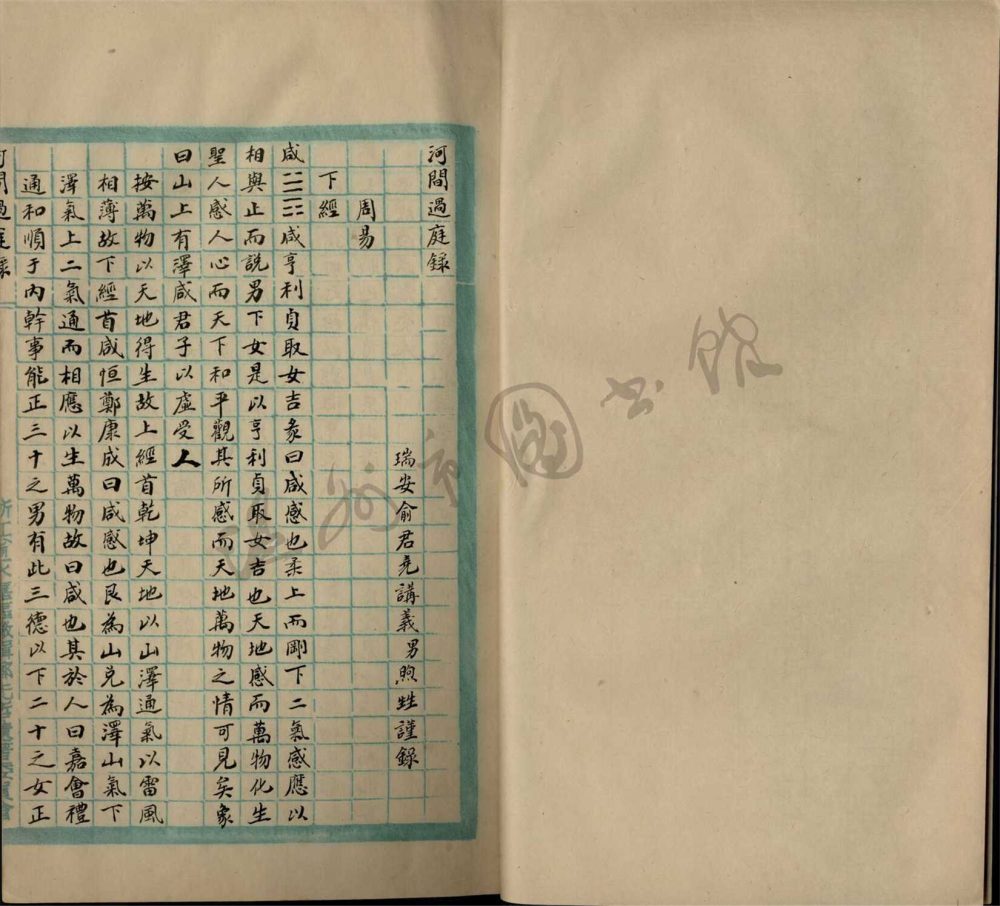 河間過庭錄
瑞安俞君堯講義男煦甡謹錄
周易
下經
咸䷞咸亨利貞取女吉彖曰咸感也柔上而剛下二氣感應以
相與止而說男下女是以亨利貞取女吉也天地感而萬物化生
聖人感人心而天下和平觀其所感而天地萬物之情可見矣象
曰山上有澤咸君子以虛受人
按萬物以天地得生故上經首乾坤天地以山澤通氣以雷風
相薄故下經首咸恒鄭康成曰咸感也艮為山兌為澤山氣下
澤氣上二氣通而相應以生萬物故曰咸也其於人曰嘉會禮
通和順于內幹事能正三十之男有此三德以下二十之女正
河間過庭錄
圖書館